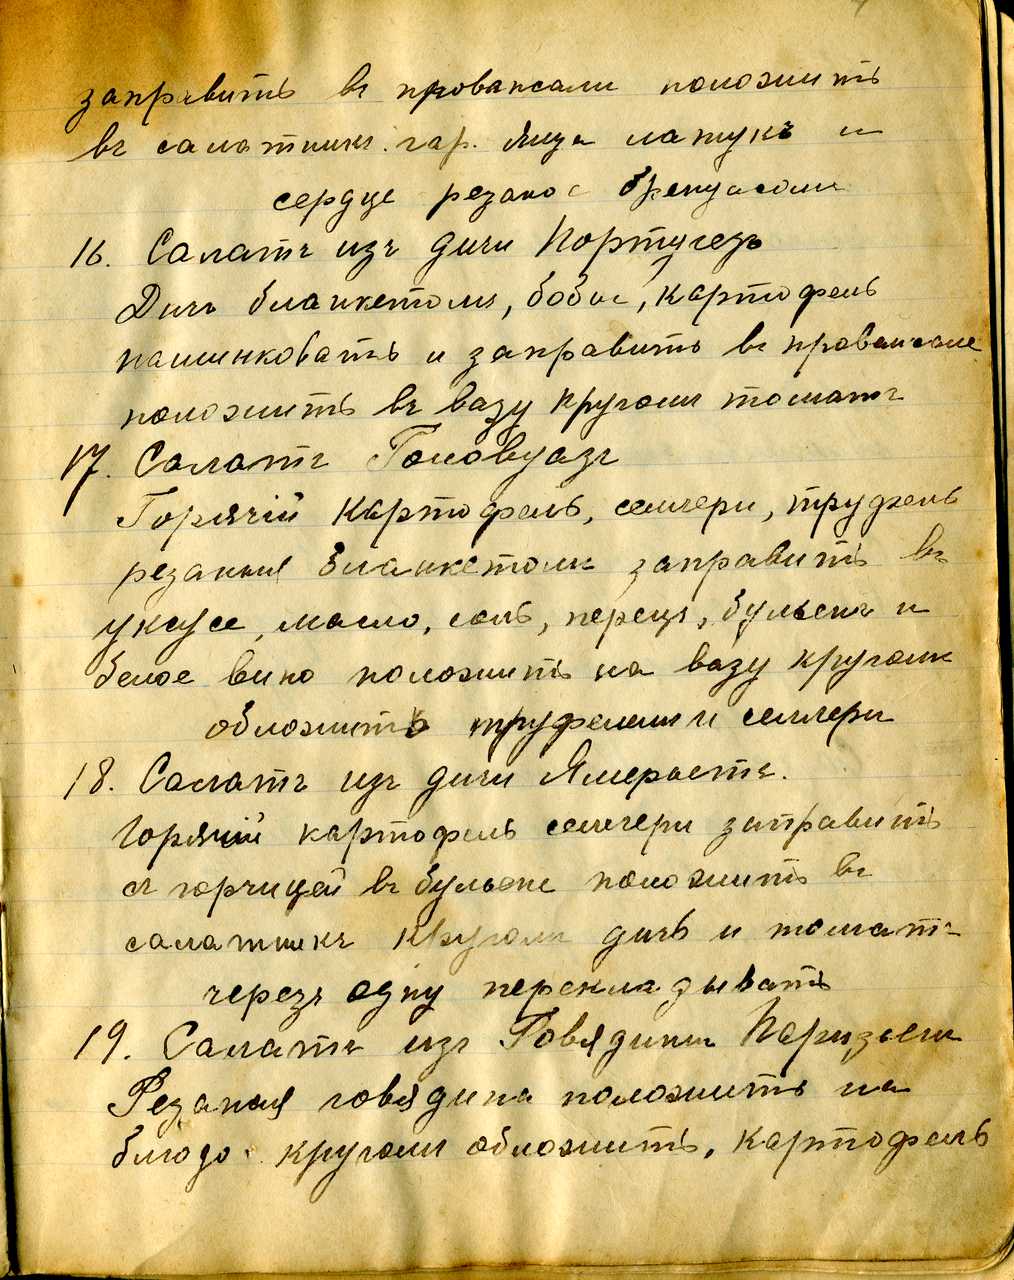 заправить въ провансали положить
въ салатникъ. гар. яица латукъ и
сердце резаное
16. Салатъ изъ дичи Португезъ
Дичь бланкетомъ, бобы, картофель
нашинковать и заправить въ провансале
положить въ вазу кругомъ томатъ
17. Салатъ
Горячій картофель, селлери, труфель
резаныя бланкетомъ заправить въ
уксусе, масло, соль, перецъ, бульонъ и
белое вино положить на вазу кругомъ
обложить труфелями и селлери
18. Салатъ изъ дичи
Горячій картофель селлери заправить
съ горчицей въ бульоне положить въ
салатникъ кругомъ дичь и томатъ
черезъ одну перекладывать
19. Салатъ изъ Говядины Паризьен
Резаная говядина положить на
блюдо кругомъ обложить, картофель